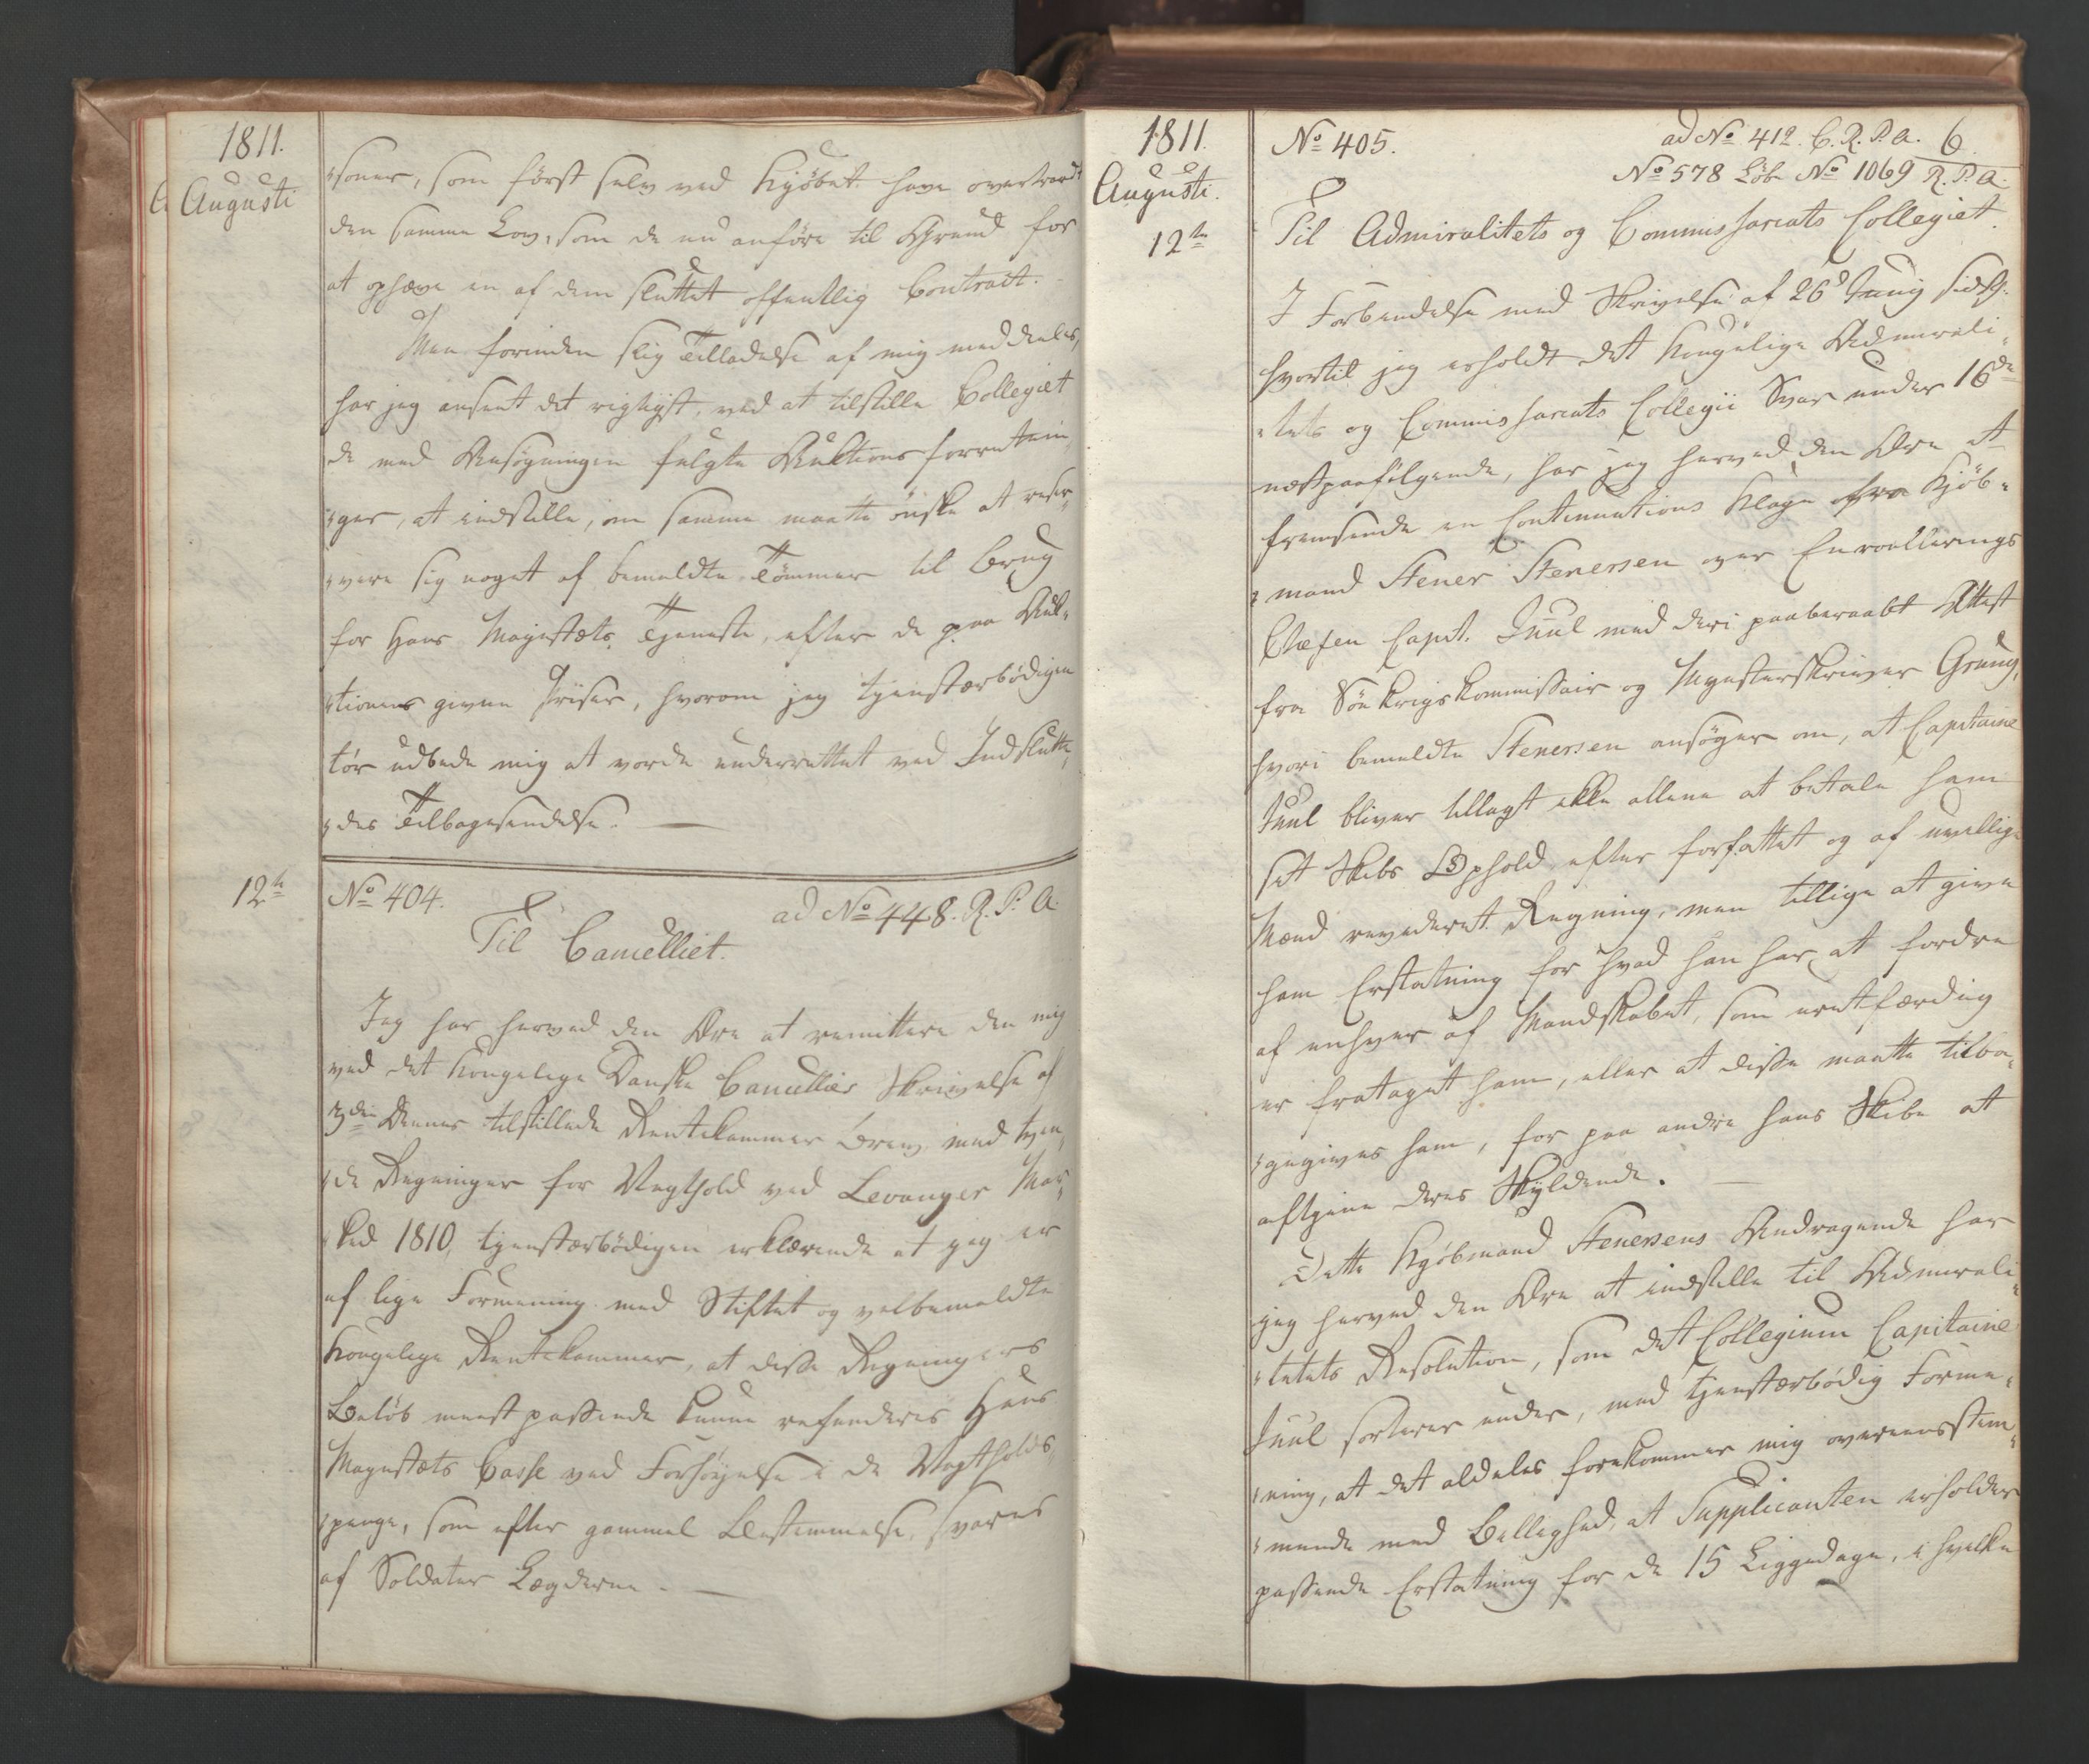 1811.
Augusti
soner, som først selv ved Kjøbet have overtraadt
den samme Lov, som de nu anføre til Grund for
at ophæve en af dem sluttet offentlig Contract.
Men forinden slig Tilladelse af mig meddeeles,
har jeg anseet det rigtigst, ved at tilstille Collegiet
de med Ansøgningen fulgte Auktionsforretnin¬
¬ger, at indstille, om samme maatte önske at reser¬
¬vere sig noget af bemeldte Tömmer til Brug
for Hans Majestæts Tjeneste, efter de paa Auk¬
¬tionen givne Priser, hvorom jeg tjenstærbödigen
tör udbede mig at vorde underrettet ved Indslutte¬
¬des Tilbagesendelse. —
12te
No 404.
ad No 448. R. P. A.
Til Cancelliet.
Jeg har herved den Ære at remittere den mig
ved det Kongelige Danske Cancellies Skrivelse af
3die Dennes tilstillede Rentekammer Brev med tven¬
¬de Regninger for Vagthold ved Levanger Mar¬
¬ked 1810, tjenstærbödigen erklærende at jeg er
af lige Formening med Stiftet og velbemeldte
Kongelige Rentekammer, at disse Regningers
Belöb meest passende kunne refunderes Hans
Majestæts Casse ved Forhöyelse i de Vagtholds
penge, som efter gammel Bestemmelse svares
af Soldater Lægderne. —
1811.
Augusti.
12te
No 405.
ad No 412. C. R. P. A. 6.
No 578 Löb No 1069 R. P. A.
Til Admiralitets og Commissariats Collegiet.
I Forbindelse med Skrivelse af 26d Juny sidstl.
hvortil jeg erholdt det Kongelige Admirali¬
¬tets og Commissariats Collegii Svar under 16de
næstpaafölgende, har jeg herved den Ære at
fremsende en Continuations Klage fra Kjöb¬
¬mand Stener Stenersen over Enroullerings
Chefen Capit. Juul med deri paaberaabt Attest
fra Söe Krigskommissair og Mynsterskriver Grüng,
hvori bemeldte Stenersen ansöger om, at Capitaine
Juul bliver tillagt ikke allene at betale ham
sit Skibs Ophold efter forfattet og af uvillige
Mænd revideret Regning, men tillige at give
ham Erstatning for hvad han har at fordre
af enhver af Mandskabet, som uretfærdig
er frataget ham, eller at disse maatte tilba¬
¬gegives ham, for paa andre hans Skibe at
aftjene deres Skyldende. —
Dette Kjöbmand Stenersens Andragende har
jeg herved den Ære at indstille til Admirali¬
¬tetets Resolution, som det Collegium Capitaine
Juul sorterer under, med tjenstærbödig Forme¬
¬ning, at det aldeles forekommer mig overeensstem¬
¬mende med Billighed, at Supplicanten erholder
passende Erstatning for de 15 Liggedage, i hvilke